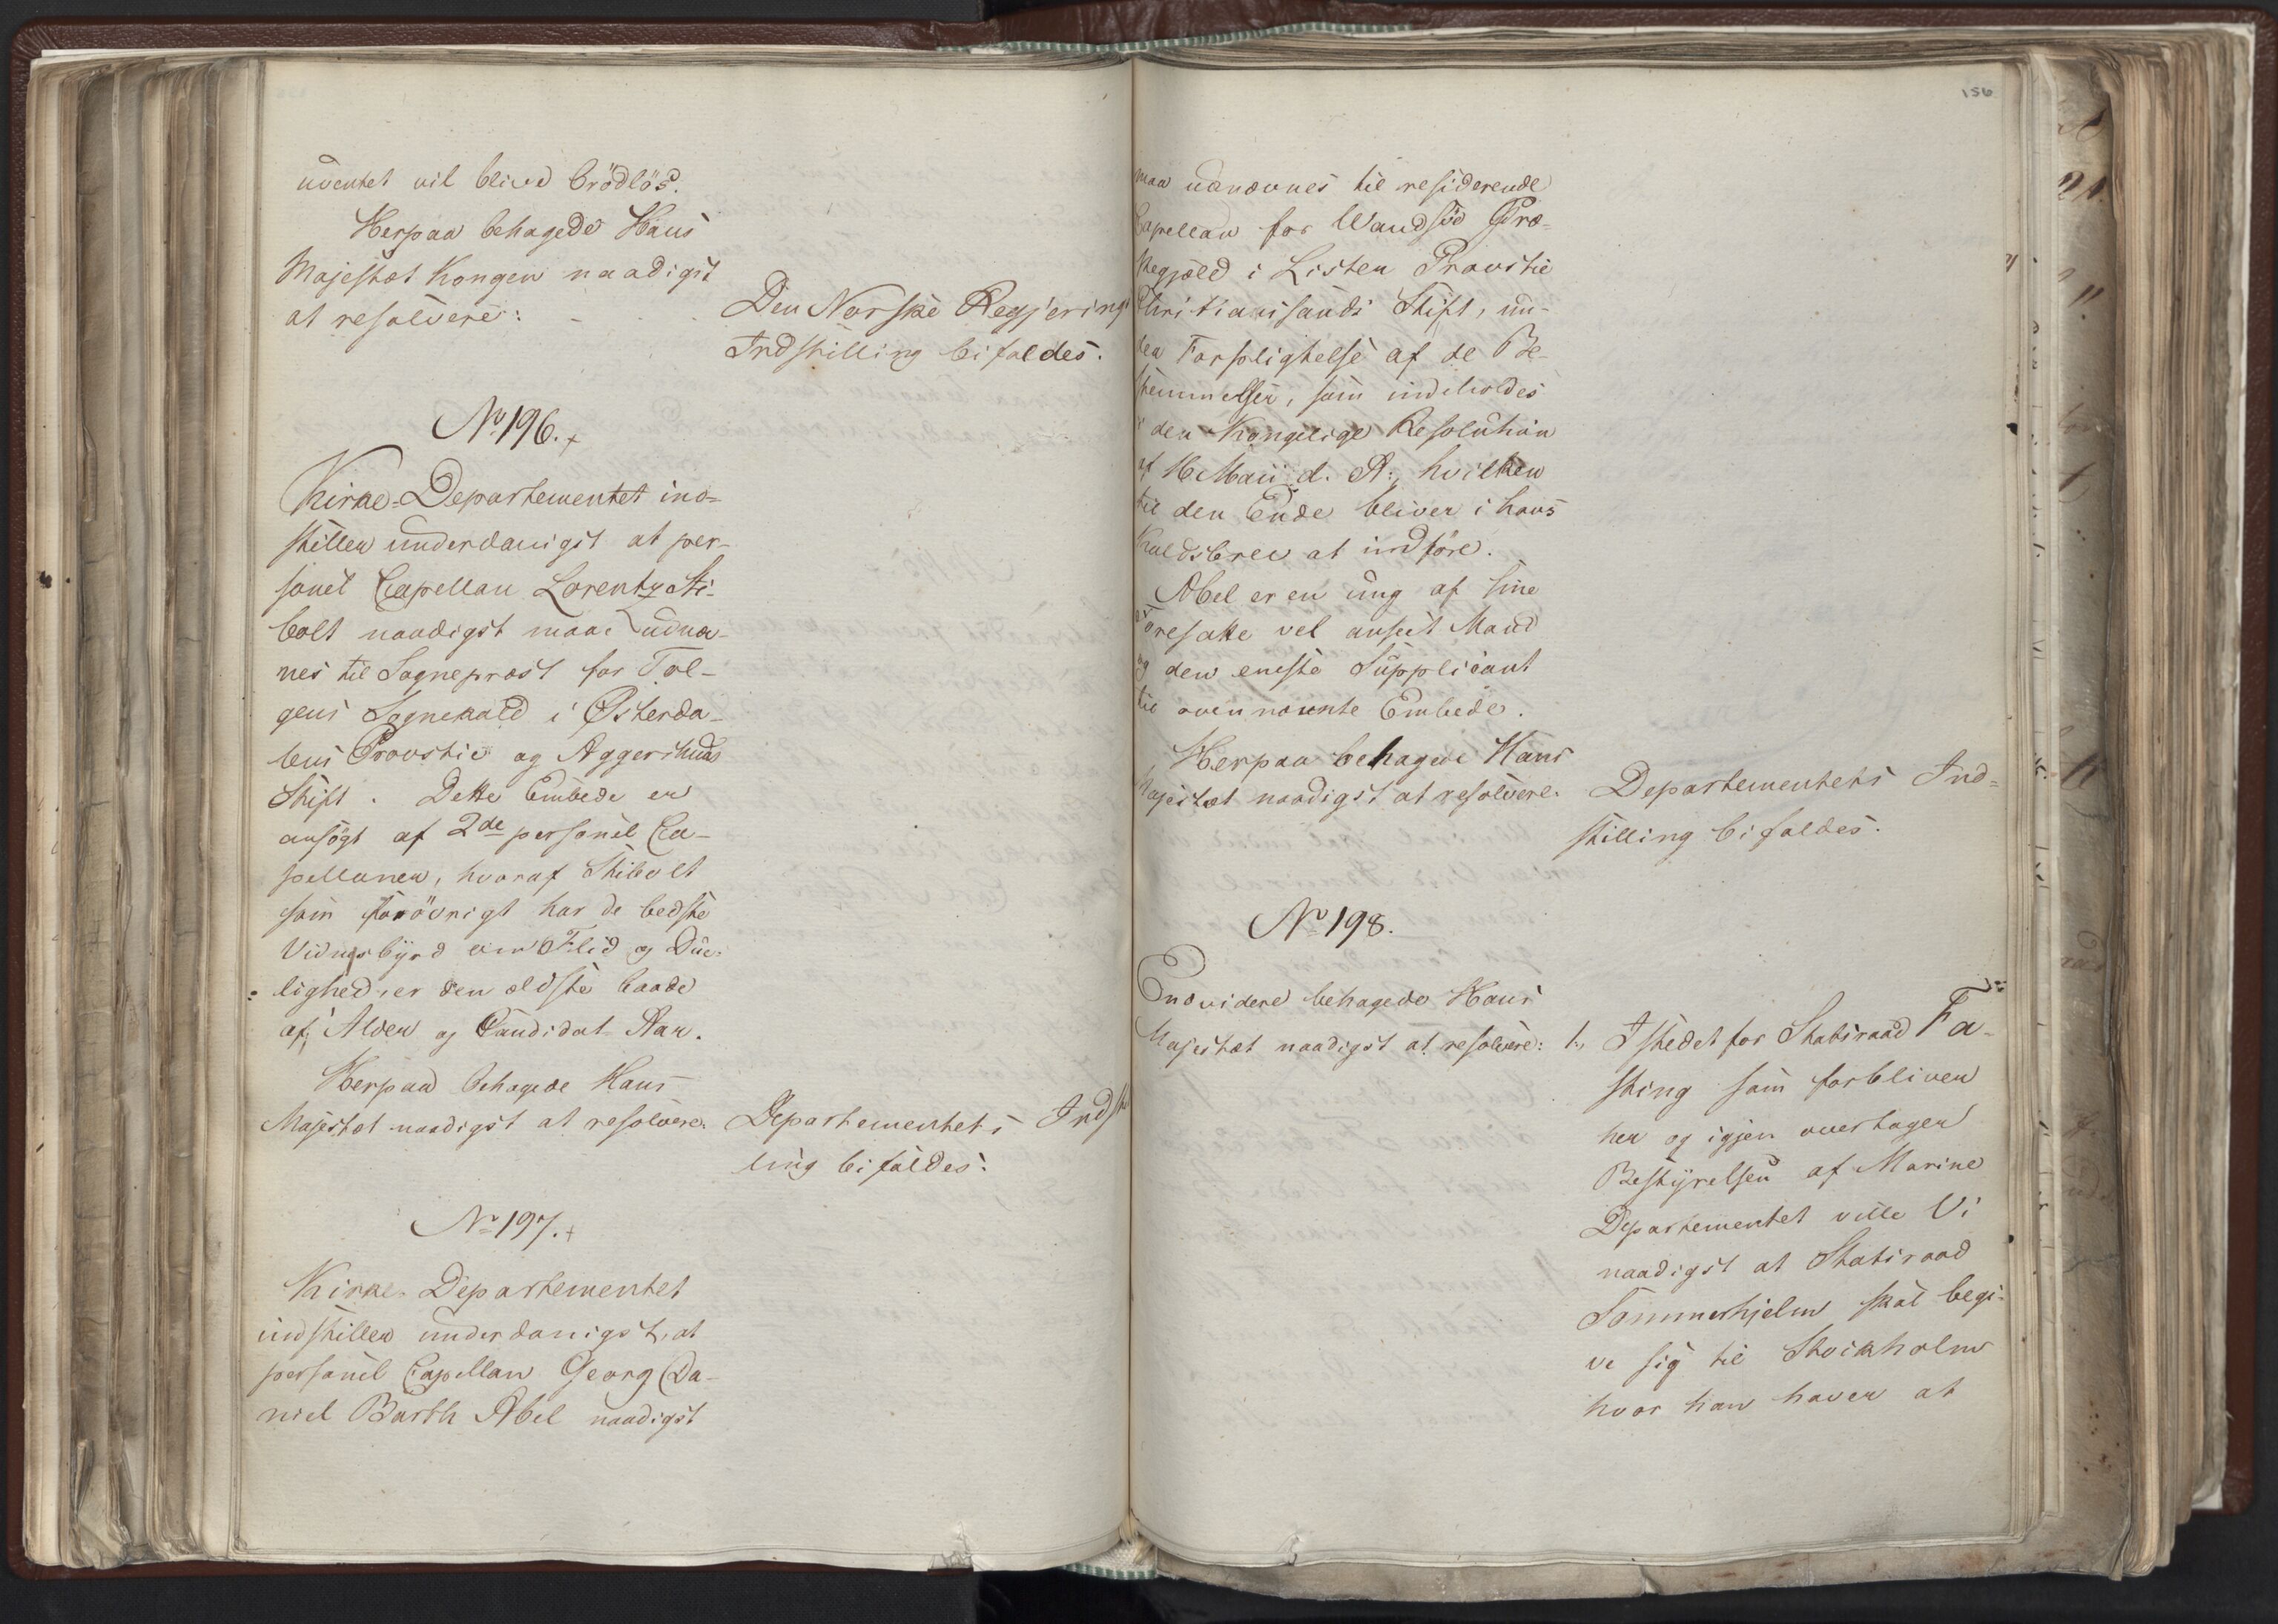 uventet vil blive brödlös.
Herpaa behagede Hans
Majestæt Kongen naadigst
at resolvere:
Den Norske Regjerings
Indstilling bifaldes.
No 196.
Kirke-Departementet ind-
stiller underdanigst at per-
sonel Capellan Lorentz Sti-
bolt naadigst maae udnæ-
nes til Sognepræst for Tol-
gens Sognekald i Østerda-
lens Provstie og Aggershuus
Stift. Dette Embede er
ansögt af 2de personel Ca-
pellaner, hvoraf Stibolt
som forövrigt har de bedste
Vidnesbyrd om Flid og Due-
lighed, er den ældste baade
af Alder og Candidat Aar.
Herpaa behagede Hans
Majestæt naadigst at resolvere:
Departementets Indstil
ling bifaldes.
No 197.
Kirke-Departementet
indstiller underdanigst, at
personel Capellan Georg Da-
niel Barth Abel naadigst
156
maa udnævnes til residerende
Capellan for Wandsöd Præ-
stegjæld i Lister Provstie
Christiansands Stift, un-
der Forpligtelse af de Be-
stemmelser, som indeholdes
i den Kongelige Resolution
af 16 Maii d. A., hvilken
til den Ende bliver i hans
Kaldsbrev at indföre.
Abel er en ung af sine
Foresatte vel anseet Mand
og den eneste Supplicant
til ovennævnte Embede.
Herpaa behagede Hans
Majestæt naadigst at resolvere:
Departementets Ind-
stilling bifaldes.
No 198.
Endvidere behagede Hans
Majestæt naadigst at resolvere:
1, Istedet for Statsraad Fa-
sting som forbliver
her og igjen overtager
Bestyrelsen af Marine
Departementet ville Vi
naadigst at Statsraad
Sommerhjelm skal begi-
ve sig til Stockholm
hvor han haver at